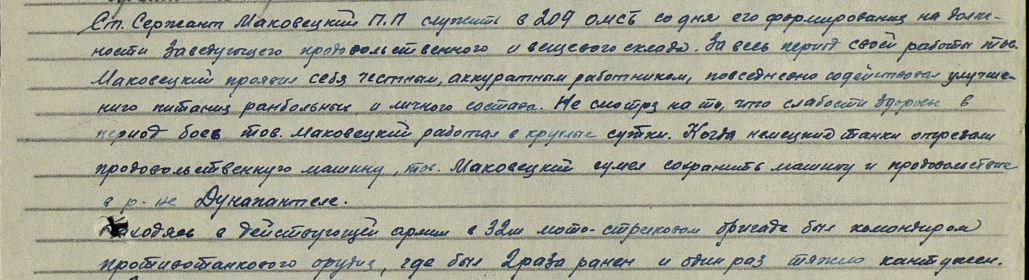 Ст. Сержант Маковецкий П.П служить в 209 омсб со дня его формирования на долж-
ности Заведующего продовольственного и вещевого склада. За весь период своей работы тов.
Маковецкий проявил себя честным, аккуратным работником, повседневно содействовал улучше-
нию питания ранбольных и личного состава. Не смотря на то, что слабости здоровья в
период боев тов. Маковецкий работал в круглые сутки. Когда немецкие танки отрезали
продовольственную машину, тов. Маковецкий сумел сохранить машину и продовольствие
в р-не Дунапентеле.
Находясь в действующей армии в 32й мото-стрелковой бригаде был командиром
противотанкового орудия, где был 2 раза ранен и один раз тяжело кантужен.